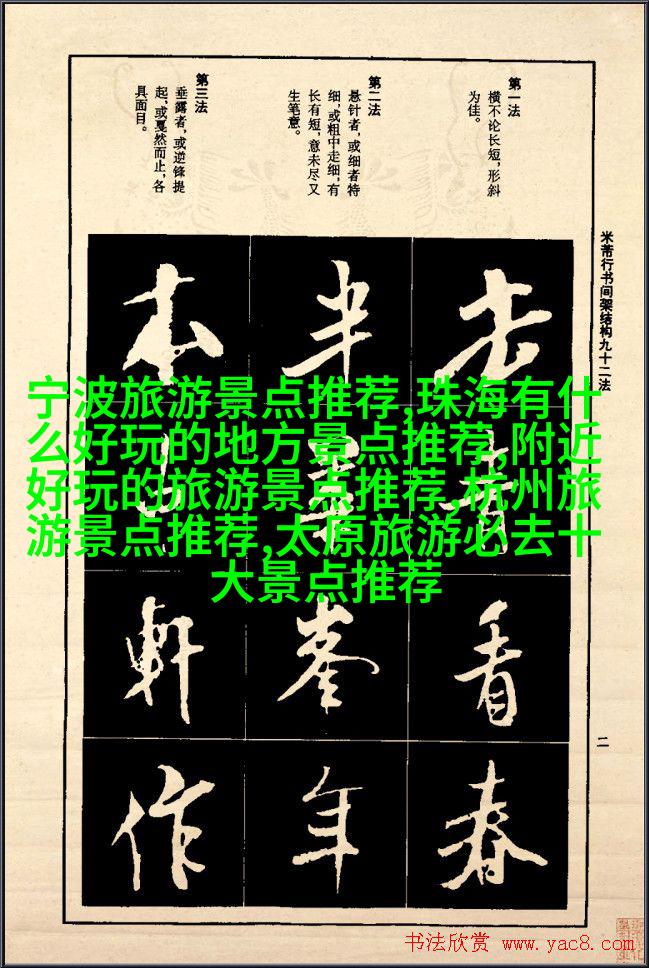 第一法
横不论长短，形斜
为佳。
第二法
悬针者，或细者特
细，或粗中走细，有
长有短，意未尽又
生笔意。
第三法
垂露者，或逆锋提
起，或戛然而止，各
具面目。
米芾行书间架结构九十二法
宁波旅游景点推荐,珠海有什
么好玩的地方景点推荐,附近
好玩的旅游景点推荐,杭州旅
游景点推荐,太原旅游必去十
大景点推荐
看
春
半
峯
年
本
軒
作
二
书法欣赏 www.yac8.com